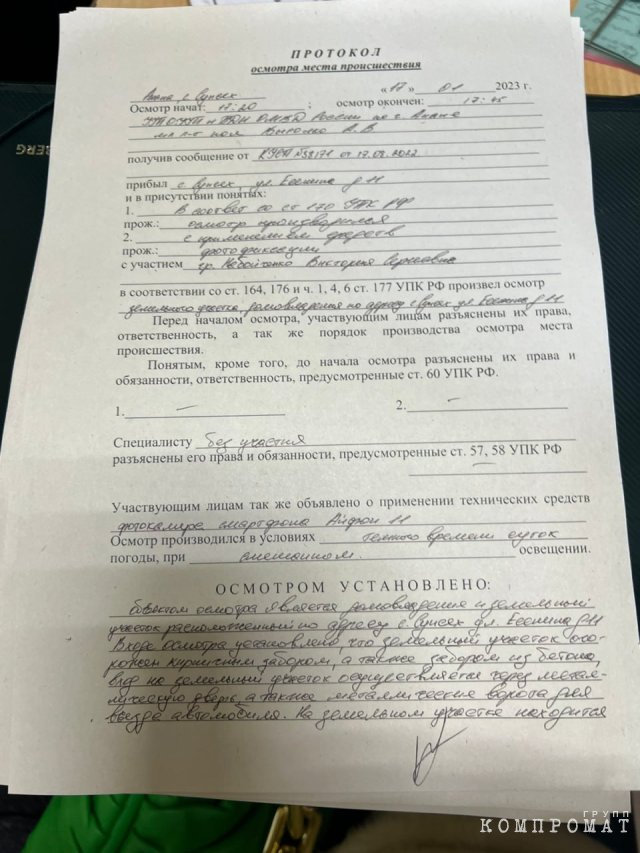 ПРОТОКОЛ
осмотра места происшествия
Анапа, с. Супсех « 17 » 01 2023 г.
Осмотр начат: 17:20 ; осмотр окончен: 17:45
ОМВД России по г. Анапа
получив сообщение от КУСП №
прибыл с. Супсех, ул. Есенина д 11
и в присутствии понятых:
1. В соответ со ст 170 УПК РФ
прож.: осмотр производился
2. с применением средств
прож.: фотофиксации
с участием гр. Виктория Сергеевна
в соответствии со ст. 164, 176 и ч. 1, 4, 6 ст. 177 УПК РФ произвел осмотр
земельного участка, домовладения по адресу с. Супсех ул. Есенина д 11
Перед началом осмотра, участвующим лицам разъяснены их права,
ответственность, а так же порядок производства осмотра места
происшествия.
Понятым, кроме того, до начала осмотра разъяснены их права и
обязанности, ответственность, предусмотренные ст. 60 УПК РФ.
1. — 2. —
Специалисту без участия
разъяснены его права и обязанности, предусмотренные ст. 57, 58 УПК РФ
—
Участвующим лицам так же объявлено о применении технических средств
фотокамера смартфона Айфон 11
Осмотр производился в условиях темного времени суток
погоды, при смешанном освещении.
ОСМОТРОМ УСТАНОВЛЕНО:
Объектом осмотра является домовладение и земельный
участок расположенный по адресу с. Супсех ул. Есенина д 11
В ходе осмотра установлено, что земельный участок ого-
рожен кирпичным забором, а также забором из бетона,
вход на земельный участок осуществляется через метал-
лическую дверь, а также металлические ворота для
въезда автомобиля. На земельном участке находится
ГРУПП
КОМПРОМАТ